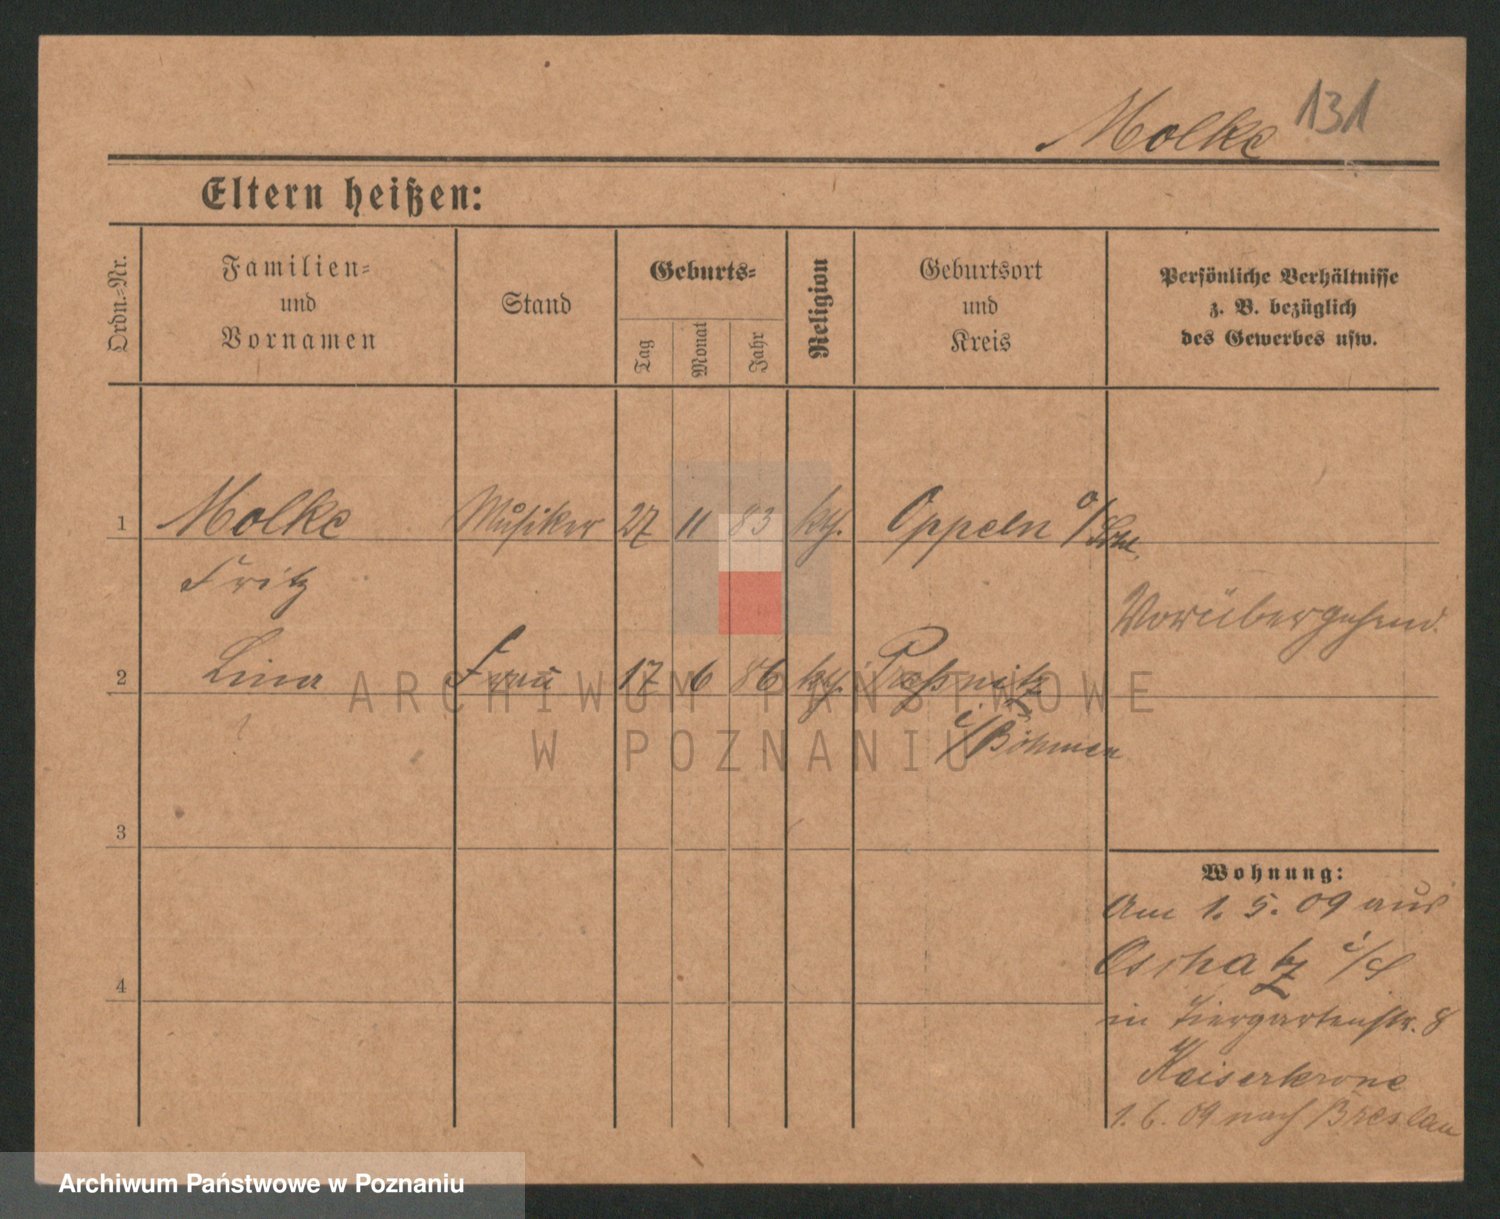 Molke 131
Eltern heißen:
Ordn.-Nr.
Familien-
und
Vornamen
Stand
Geburts-
Tag
Monat
Jahr
Religion
Geburtsort
und
Kreis
Persönliche Verhältnisse
z. B. bezüglich
des Gewerbes usw.
1 Molke Musiker 27 11 83 kth. Oppeln o/Schl.
Fritz
Vorübergehend.
2 Lina Frau 17 6 86 kth. Preßnitz
i/Böhmen
ARCHIWUM PAŃSTWOWE
W POZNANIU
3
4
Wohnung:
Am 1. 5. 09 aus
Oschatz i/S
in Tiergartenstr. 8
Kaiserkrone
1. 6. 09 nach Breslau
Archiwum Państwowe w Poznaniu